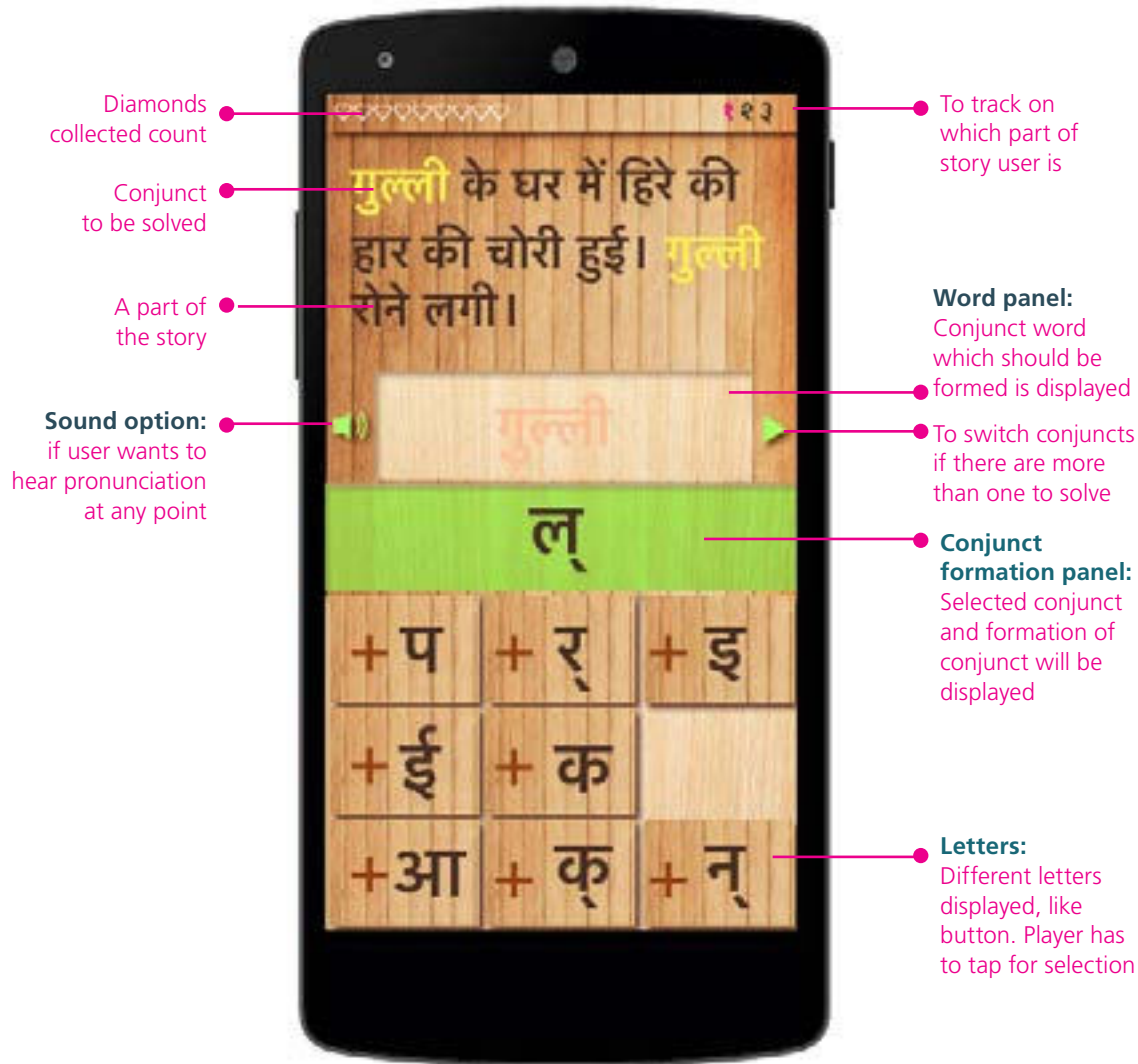 Diamonds
collected count
Conjunct
to be solved
A part of
the story
Sound option:
if user wants to
hear pronunciation
at any point
१२३
गुल्ली के घर में हिरे की
हार की चोरी हुई। गुल्ली
रोने लगी।
गुल्ली
ल्
+ प + र् + इ
+ ई + क
+ आ + क् + न्
To track on
which part of
story user is
Word panel:
Conjunct word
which should be
formed is displayed
To switch conjuncts
if there are more
than one to solve
Conjunct
formation panel:
Selected conjunct
and formation of
conjunct will be
displayed
Letters:
Different letters
displayed, like
button. Player has
to tap for selection